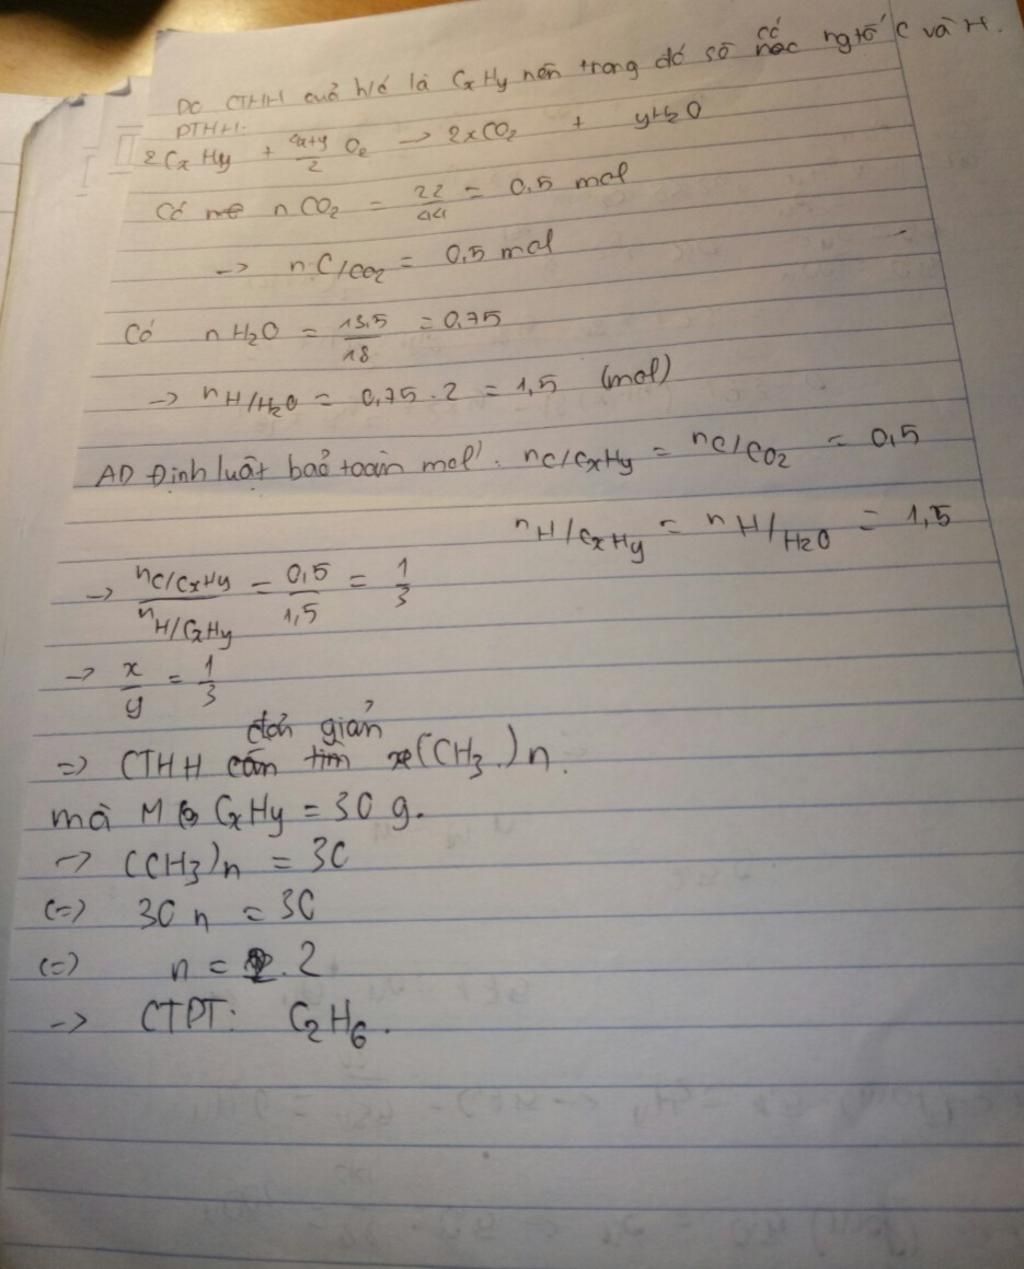 Do CTHH của h/c là CxHy nên trong đó số có ngtố C và H.
PTHH:
2CxHy + 4x+y/2 O2 -> 2xCO2 + yH2O
Có nCO2 = 22/44 = 0,5 mol
-> nC/CO2 = 0,5 mol
Có nH2O = 13,5/18 = 0,75
-> nH/H2O = 0,75 . 2 = 1,5 (mol)
AD Định luật bảo toàn mol: nC/CxHy = nC/CO2 = 0,5
nH/CxHy = nH/H2O = 1,5
-> nC/CxHy / nH/CxHy = 0,5/1,5 = 1/3
-> x/y = 1/3
đơn giản
=> CTHH tìm (CH3)n.
mà M CxHy = 30 g.
-> (CH3)n = 30
(=) 30 n = 30
(=) n = 2
-> CTPT: C2H6.